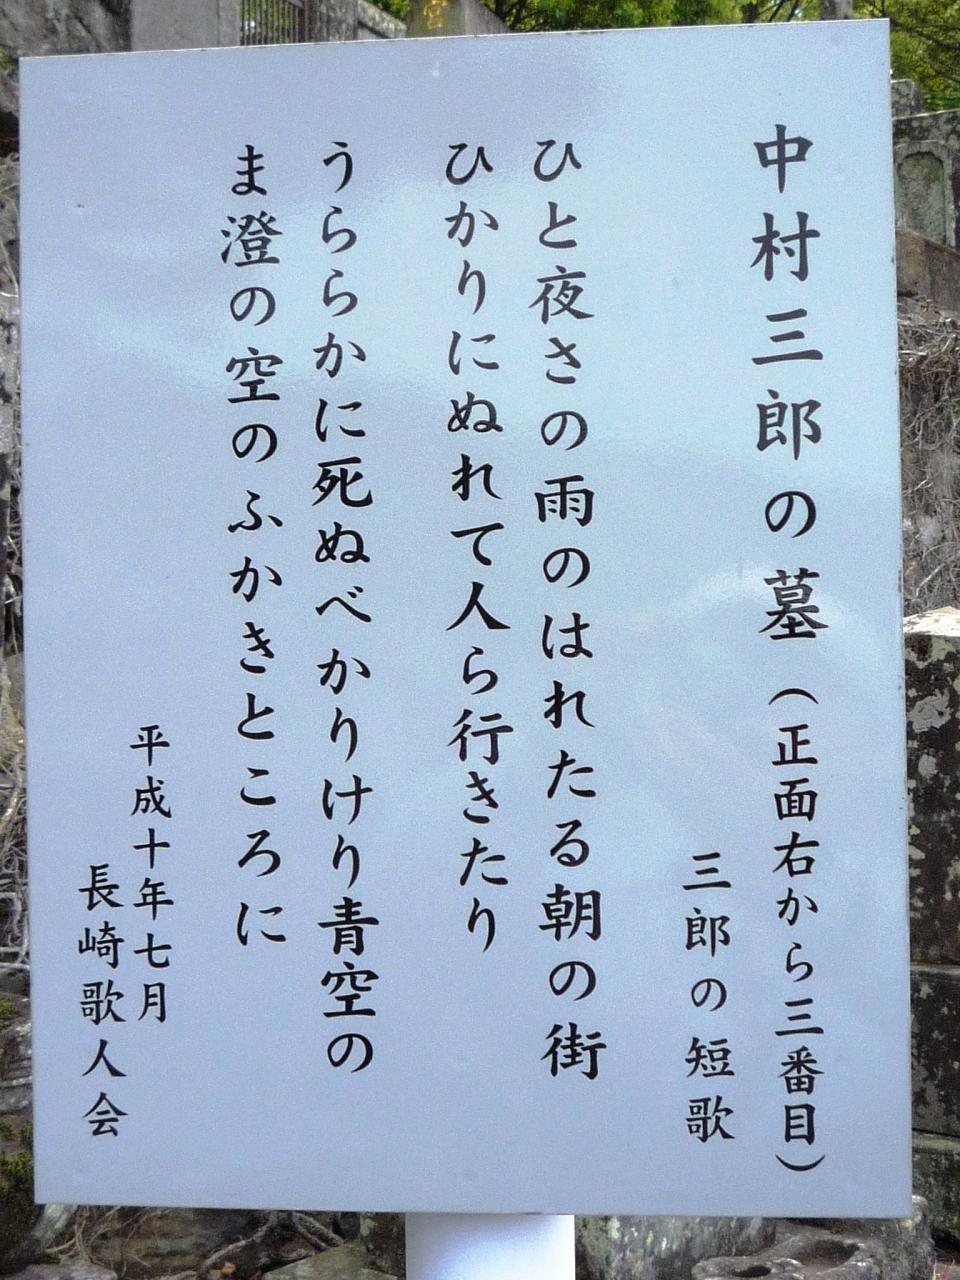 中村三郎の墓（正面右から三番目）
三郎の短歌
ひと夜さの雨のはれたる朝の街
ひかりにぬれて人ら行きたり
うららかに死ぬべかりけり青空の
ま澄の空のふかきところに
平成十年七月
長崎歌人会